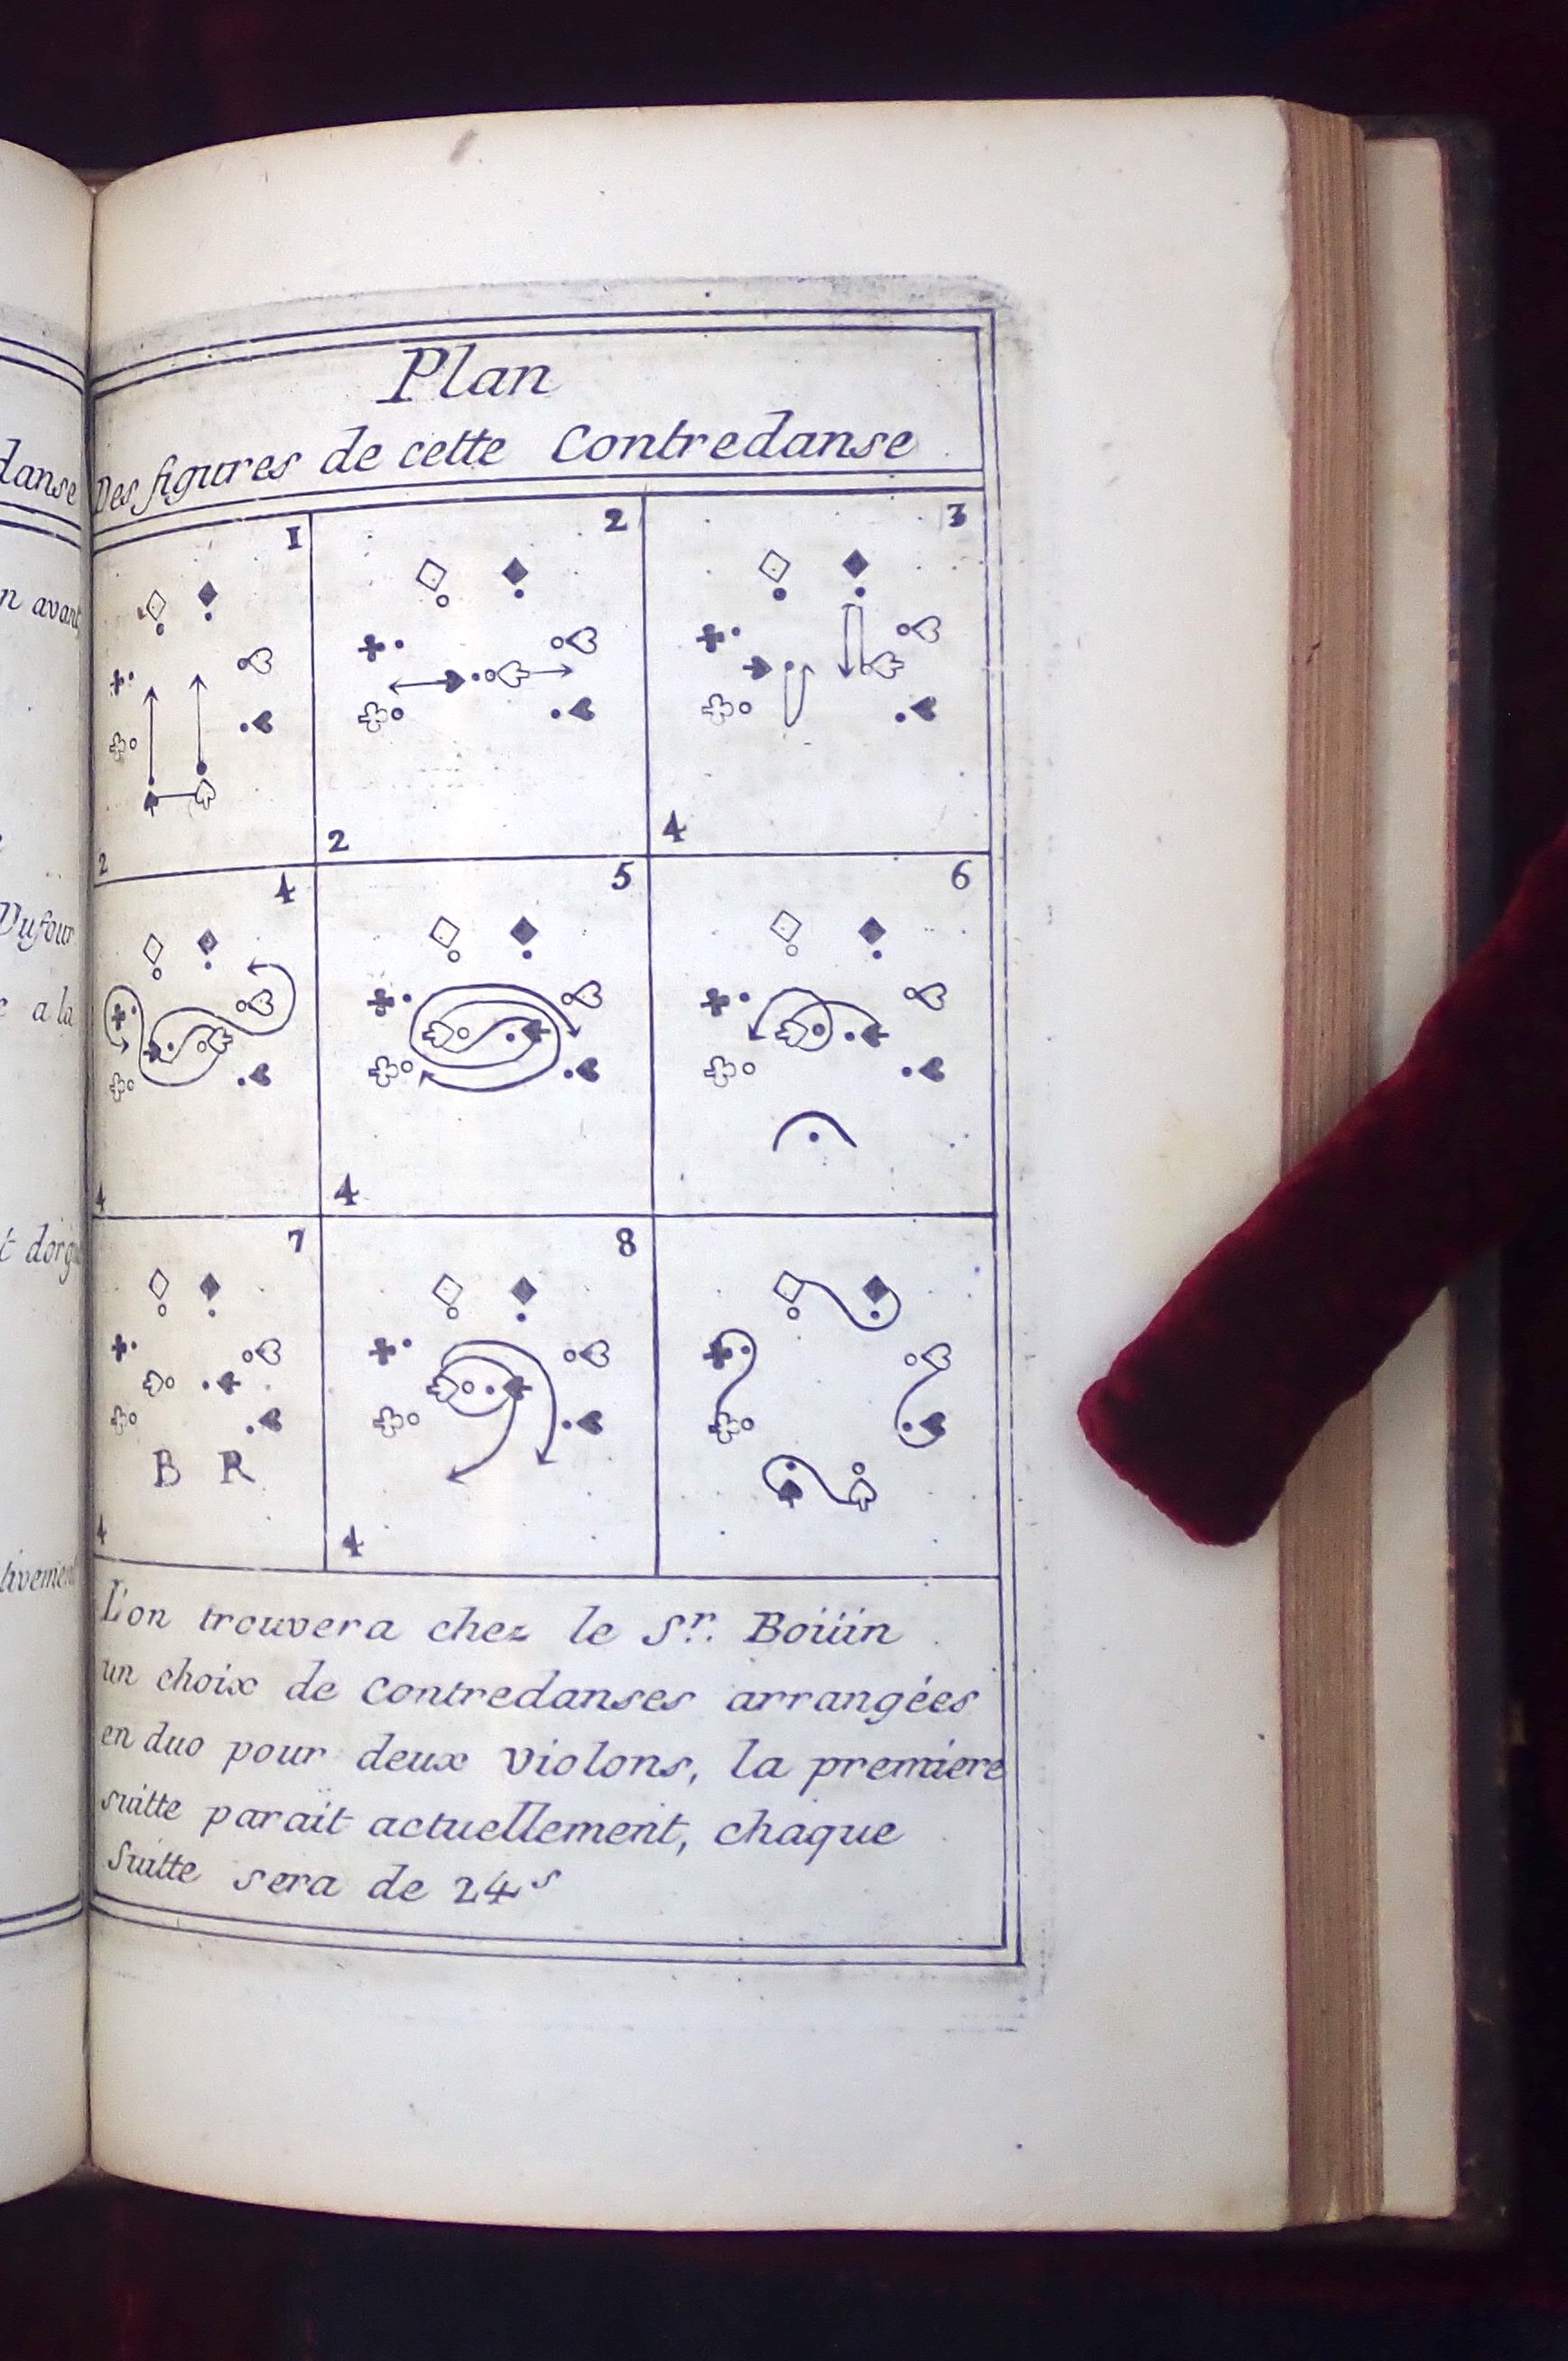 Plan
Des figures de cette Contredanse
danse
1 2 3
n avant
2 2 4
4 5 6
Dufour
e a la
4 4
7 8
B R
4 4
L'on trouvera chez le Sr. Boüin
un choix de contredanses arrangées
en duo pour deux violons, la premiere
suitte parait actuellement, chaque
Suitte sera de 24s